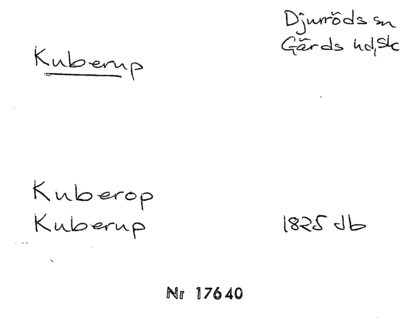 Djurröds sn
Kuberup Gärds hd, Sk
Kuberop
Kuberup 1825 db
Nr 17640